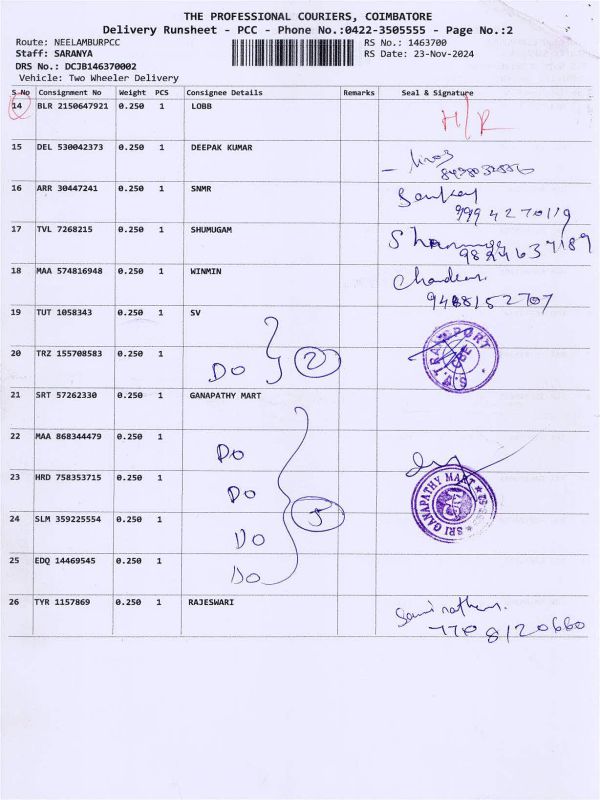 THE PROFESSIONAL COURIERS, COIMBATORE
Delivery Runsheet - PCC - Phone No.:0422-3505555 - Page No.:2
Route: NEELAMBURPCC RS No.: 1463700
Staff: SARANYA RS Date: 23-Nov-2024
DRS No.: DCJB146370002
Vehicle: Two Wheeler Delivery
S No Consignment No Weight PCS Consignee Details Remarks Seal & Signature
14 BLR 2150647921 0.250 1 LOBB H/R
15 DEL 530042373 0.250 1 DEEPAK KUMAR
16 ARR 30447241 0.250 1 SNMR Sankar
9994270119
17 TVL 7268215 0.250 1 SHUMUGAM
9824637189
18 MAA 574816948 0.250 1 WINMIN
9488152707
19 TUT 1058343 0.250 1 SV
20 TRZ 155708583 0.250 1 Do 2 S.V. TRANSPORT
21 SRT 57262330 0.250 1 GANAPATHY MART
22 MAA 868344479 0.250 1 Do
23 HRD 758353715 0.250 1 Do 5 SRI GANAPATHY MART
24 SLM 359225554 0.250 1 Do
25 EDQ 14469545 0.250 1 Do
26 TYR 1157869 0.250 1 RAJESWARI
7708120660